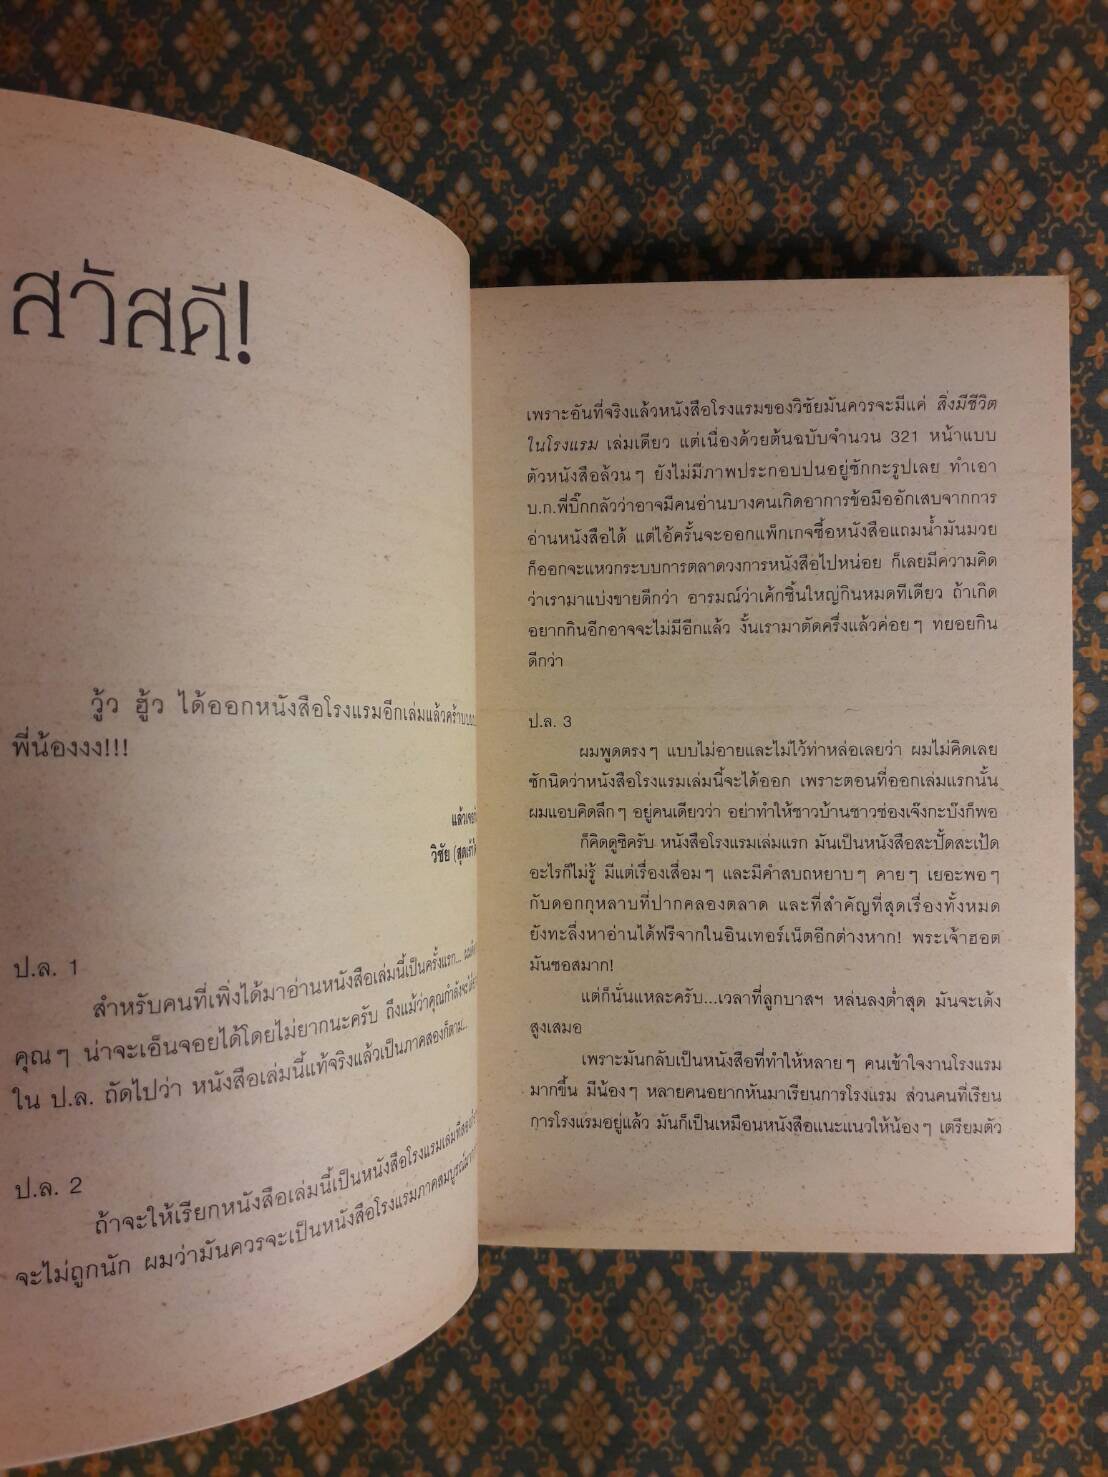 สวัสดี!
วู้ว ฮู้ว ได้ออกหนังสือโรงแรมอีกเล่มแล้วคร้าบ
พี่น้องงง!!!
วิชัย
ป.ล. 1
สำหรับคนที่เพิ่งได้มาอ่านหนังสือเล่มนี้เป็นครั้งแรก...
คุณๆ น่าจะเอ็นจอยได้โดยไม่ยากนะครับ ถึงแม้ว่าคุณกำลังจะได้
ใน ป.ล. ถัดไปว่า หนังสือเล่มนี้แท้จริงแล้วเป็นภาคสองก็ตาม...
ป.ล. 2
ถ้าจะให้เรียกหนังสือเล่มนี้เป็นหนังสือโรงแรมเล่มที่สอง
จะไม่ถูกนัก ผมว่ามันควรจะเป็นหนังสือโรงแรมภาคสมบูรณ์
เพราะอันที่จริงแล้วหนังสือโรงแรมของวิชัยมันควรจะมีแค่ สิ่งมีชีวิต
ในโรงแรม เล่มเดียว แต่เนื่องด้วยต้นฉบับจำนวน 321 หน้าแบบ
ตัวหนังสือล้วนๆ ยังไม่มีภาพประกอบปนอยู่ซักกะรูปเลย ทำเอา
บ.ก.พี่บิ๊กกลัวว่าอาจมีคนอ่านบางคนเกิดอาการข้อมืออักเสบจากการ
อ่านหนังสือได้ แต่ไอ้ครั้นจะออกแพ็กเกจซื้อหนังสือแถมน้ำมันมวย
ก็ออกจะแหวกระบบการตลาดวงการหนังสือไปหน่อย ก็เลยมีความคิด
ว่าเรามาแบ่งขายดีกว่า อารมณ์ว่าเค้กชิ้นใหญ่กินหมดทีเดียว ถ้าเกิด
อยากกินอีกอาจจะไม่มีอีกแล้ว งั้นเรามาตัดครึ่งแล้วค่อยๆ ทยอยกิน
ดีกว่า
ป.ล. 3
ผมพูดตรงๆ แบบไม่อายและไม่ไว้ท่าหล่อเลยว่า ผมไม่คิดเลย
ซักนิดว่าหนังสือโรงแรมเล่มนี้จะได้ออก เพราะตอนที่ออกเล่มแรกนั้น
ผมแอบคิดลึกๆ อยู่คนเดียวว่า อย่าทำให้ชาวบ้านชาวช่องเจ๊งกะบ๊งก็พอ
ก็คิดดูซิครับ หนังสือโรงแรมเล่มแรก มันเป็นหนังสือสะปั๊ดสะเป้ด
อะไรก็ไม่รู้ มีแต่เรื่องเสื่อมๆ และมีคำสบถหยาบๆ คายๆ เยอะพอๆ
กับดอกกุหลาบที่ปากคลองตลาด และที่สำคัญที่สุดเรื่องทั้งหมด
ยังทะลึ่งหาอ่านได้ฟรีจากในอินเทอร์เน็ตอีกต่างหาก! พระเจ้าฮอต
มันซอสมาก!
แต่ก็นั่นแหละครับ...เวลาที่ลูกบาสฯ หล่นลงต่ำสุด มันจะเด้ง
สูงเสมอ
เพราะมันกลับเป็นหนังสือที่ทำให้หลายๆ คนเข้าใจงานโรงแรม
มากขึ้น มีน้องๆ หลายคนอยากหันมาเรียนการโรงแรม ส่วนคนที่เรียน
การโรงแรมอยู่แล้ว มันก็เป็นเหมือนหนังสือแนะแนวให้น้องๆ เตรียมตัว